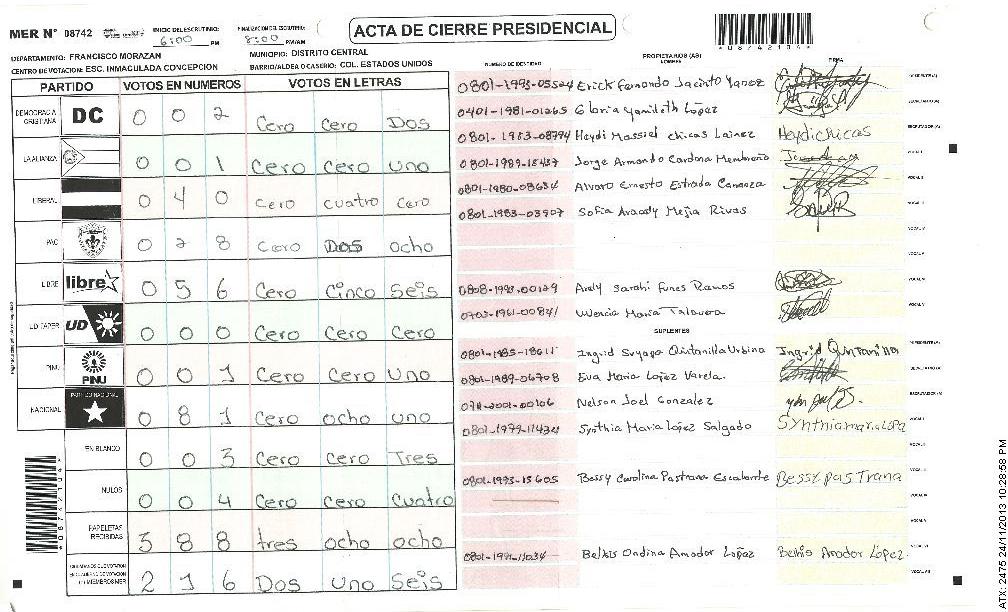 MER N° 08742
INICIO DEL ESCRUTINIO: 6:00 PM
FINALIZACION DEL ESCRUTINIO: 8:00 PM/AM
ACTA DE CIERRE PRESIDENCIAL
*08742104*
DEPARTAMENTO: FRANCISCO MORAZAN
MUNICIPIO: DISTRITO CENTRAL
CENTRO DE VOTACION: ESC. INMACULADA CONCEPCION
BARRIO/ALDEA O CASERIO: COL. ESTADOS UNIDOS
NUMERO DE IDENTIDAD
PROPIETARIOS (AS)
NOMBRE
FIRMA
PARTIDO VOTOS EN NUMEROS VOTOS EN LETRAS
DEMOCRACIA CRISTIANA DC 0 0 2 Cero Cero Dos
LA ALIANZA 0 0 1 Cero Cero Uno
LIBERAL 0 4 0 Cero cuatro Cero
PAC 0 2 8 Cero Dos ocho
LIBRE libre 0 5 6 Cero Cinco Seis
UD FAPER UD 0 0 0 Cero Cero Cero
PINU PINU 0 0 1 Cero Cero Uno
NACIONAL PARTIDO NACIONAL 0 8 1 Cero ocho uno
EN BLANCO 0 0 3 Cero Cero Tres
NULOS 0 0 4 Cero Cero Cuatro
PAPELETAS RECIBIDAS 3 8 8 tres ocho ocho
2 1 6 Dos Uno Seis
0801-1993-05524 Erick Fernando Jacinto Yanez
0401-1981-01265 Gloria Yamileth López
0801-1983-08794 Heydi Massiel chicas Lainez Heydichicas
0801-1989-18437 Jorge Armando Cardona Membreño
0801-1980-08634 Alvaro Ernesto Estrada
0801-1983-03907 Sofia Aracely Mejia Rivas
0808-1993-00129 Arely Sarahi Funes Ramos
0703-1961-00841 María Talavera
SUPLENTES
0801-1985-18611 Ingrid Suyapa Quintanilla Urbina Ingrid Quintanilla
0801-1989-06708 Eva Maria López Varela
Nelson Joel Gonzalez
0801-1979-11434 Synthia Maria López Salgado
0801-1993-15605 Bessy Carolina Pastrana Escalante Bessy pastrana
0801-1991-11034 Belkis Ondina Amador López Belkis Amador López.
*08742104*
ATX: 2475 24/11/2013 10:28:58 PM